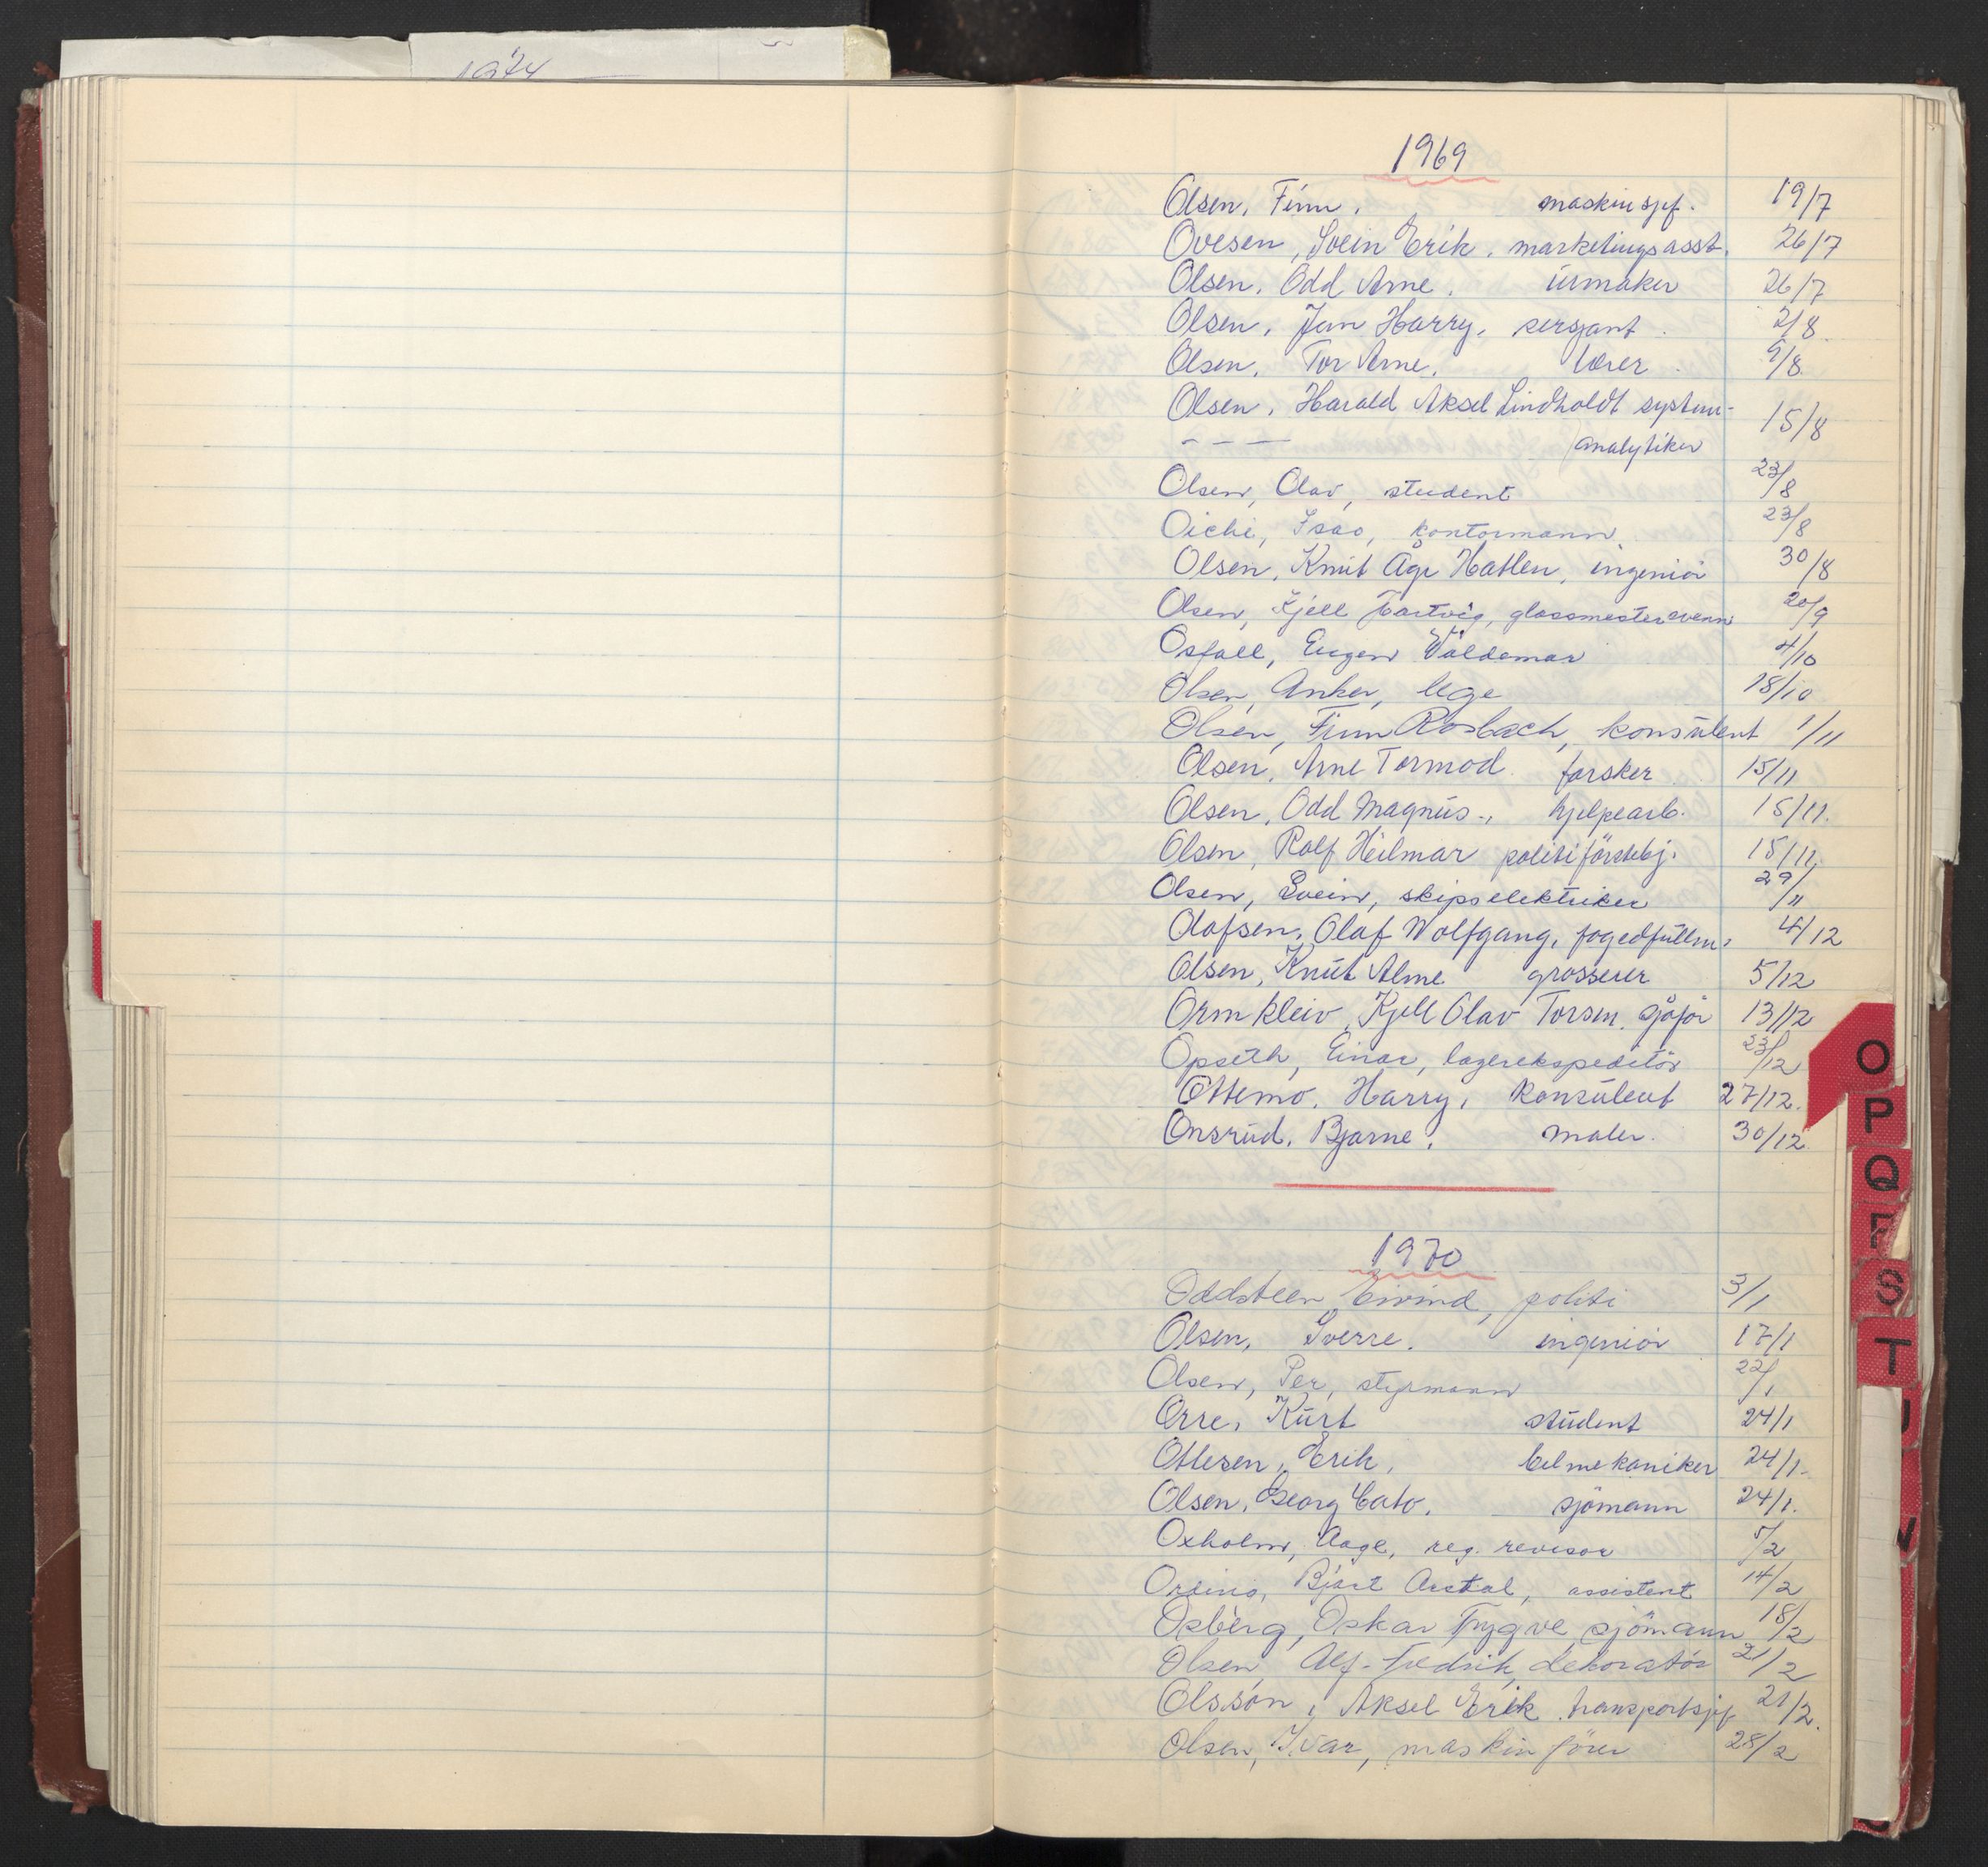 1974
1969
Olsen, Finn, maskinsjef. 19/7
Ovesen, Svein Erik, marketingsasst. 26/7
Olsen, Odd Arne, urmaker 26/7
Olsen, Jan Harry, sersjant. 2/8
Olsen, Tor Arne, lærer. 9/8
Olsen, Harald Aksel Lindholdt system- 15/8
- - — analytiker
Olsen, Olav, student 23/8
Oichi, Isao, kontormann 23/8
Olsen, Knut Åge Hatlen, ingeniör 30/8
Olsen, Kjell Hartvig, glassmestersvenn 20/9
Osfall, Eugen Waldemar 4/10
Olsen, Anker, lege 18/10
Olsen, Finn Rosbach, konsulent 1/11
Olsen, Arne Tormod forsker 15/11
Olsen, Odd Magnus, hjelpearb. 15/11.
Olsen, Rolf Heilmar politiförstebj. 15/11.
Olsen, Svein, skipselektriker 29/11
Olafsen, Olaf Wolfgang, fogedfullm. 4/12
Olsen, Knut Alme grosserer 5/12
Ormkleiv, Kjell Olav Torsen, sjåfør 13/12
Opseth, Einar, lagerekspeditör 23/12
Ottemo, Harry, konsulent 27/12.
Onsrud, Bjarne, maler. 30/12.
1970
Oddsteen, Eivind, politi 3/1
Olsen, Sverre. ingeniör 17/1
Olsen, Per, styrmann 22/1
Orre, Kurt student 24/1
Ottesen, Erik, bilmekaniker 24/1.
Olsen, Georg Cato, sjömann 24/1.
Oxholm, Aage, reg. revisor 5/2
Bjart assistent 14/2
Osberg, Oskar Trygve, sjömann 18/2
Olsen, Alf-Fredrik, dekoratör 21/2
Olsson, Aksel Erik, transportsjef 21/2.
Olsen, Ivar, maskinfører 28/2
O
P
Q
R
S
T
U
V